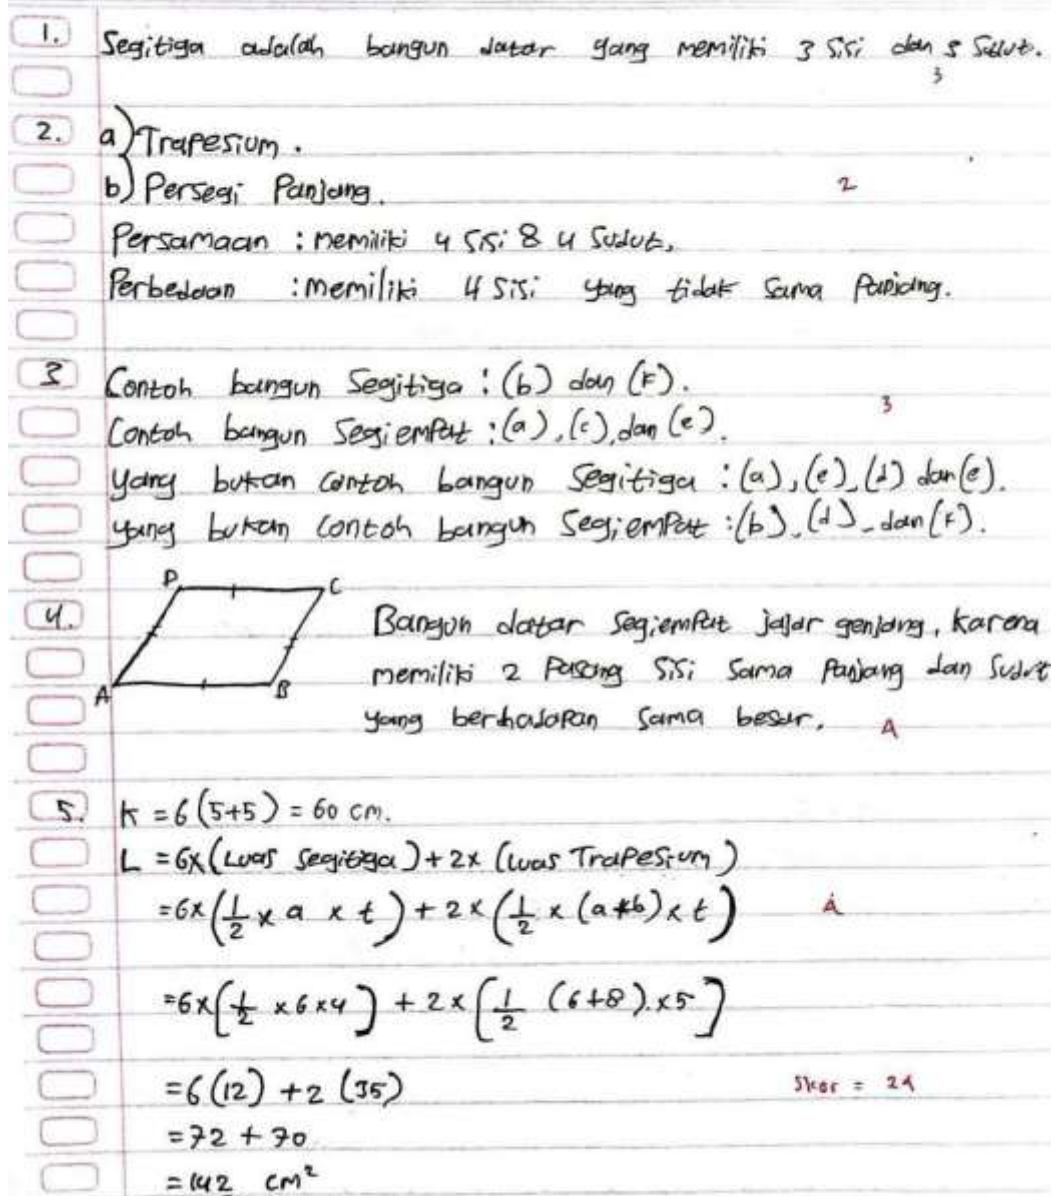 1. Segitiga adalah bangun datar yang memiliki 3 sisi dan 3 sudut.
3
2. a) Trapesium.
b) Persegi Panjang.
2
Persamaan : memiliki 4 sisi & 4 sudut,
Perbedaan : memiliki 4 sisi yang tidak sama panjang.
3 Contoh bangun Segitiga : (b) dan (F).
3
Contoh bangun Segiempat : (a), (c), dan (e).
yang bukan contoh bangun Segitiga : (a), (c), (d) dan (e).
yang bukan contoh bangun Segiempat : (b), (d), dan (F).
D C
4. Bangun datar segiempat jajar genjang, karena
memiliki 2 Pasang sisi sama panjang dan sudut
A B
yang berhadapan sama besar.
4
5. K = 6 (5+5) = 60 cm.
L = 6x (Luas segitiga) + 2x (luas Trapesium)
= 6x (1/2 x a x t) + 2x (1/2 x (a+b) x t)
4
= 6x (1/2 x 6 x 4) + 2x (1/2 (6+8).x5)
= 6 (12) + 2 (35)
Skor = 24
= 72 + 70
= 142 cm²